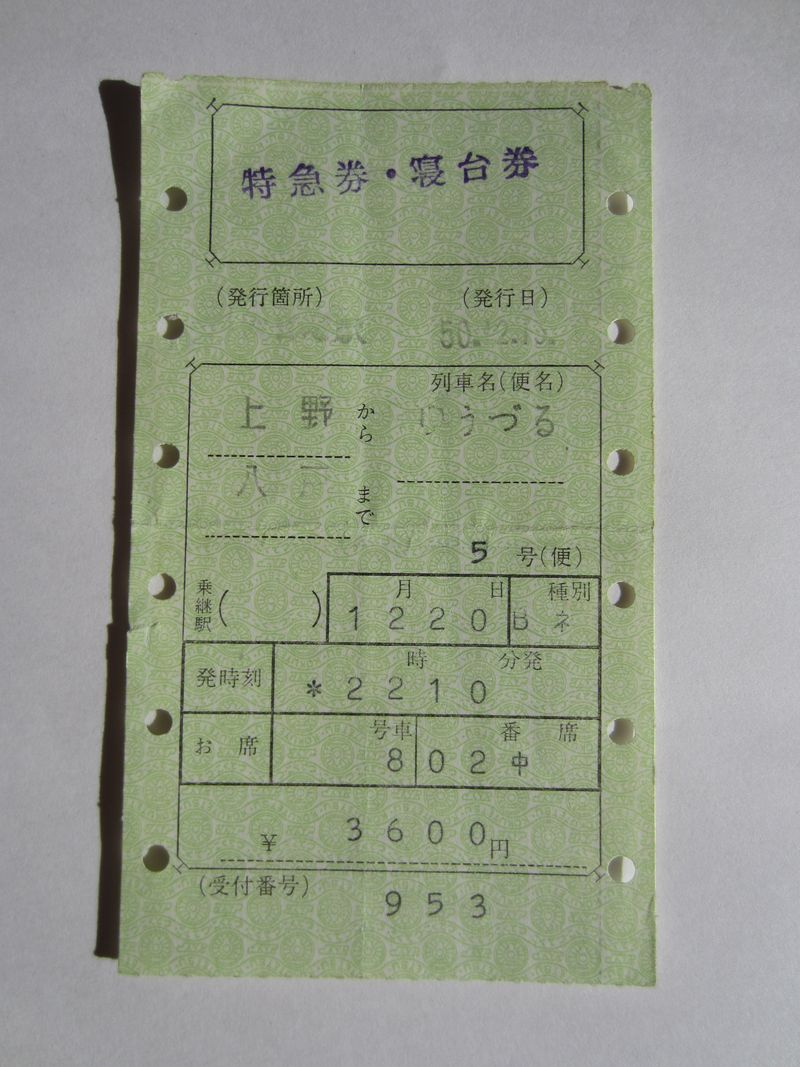 特急券・寝台券
(発行箇所) (発行日)
50.12.13.
列車名(便名)
上野から ゆうづる
八戸まで
5 号(便)
乗継駅( ) 月 日 種別
1220 Bネ
発時刻 時 分発
*2210
お席 号車 番 席
8 02中
¥ 3600円
(受付番号)
953